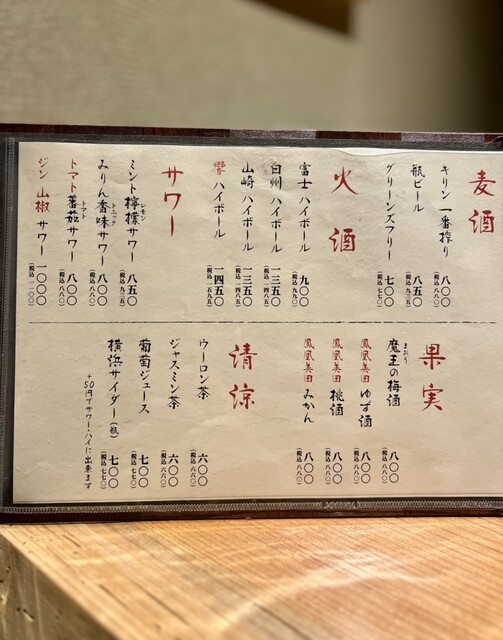 麦酒
キリン一番搾り 八〇〇
(税込 八八〇)
瓶ビール 八五〇
(税込 九三五)
グリーンズフリー 七〇〇
(税込 七七〇)
火酒
富士ハイボール 九〇〇
白州ハイボール 一三五〇
(税込 一四八五)
山崎ハイボール 一三五〇
(税込 一四八五)
響ハイボール 一四五〇
(税込 一五九五)
サワー
ミント檸檬サワー 八五〇
レモン
(税込 九三五)
みりん香味サワー 八〇〇
トニック
(税込 八八〇)
トマト蕃茄サワー 八〇〇
トマト
(税込 八八〇)
ジン山椒サワー 一〇〇〇
(税込 一一〇〇)
果実
魔王の梅酒 八〇〇
まおう
(税込 八八〇)
鳳凰美田 ゆず酒 八〇〇
(税込 八八〇)
鳳凰美田 桃酒 八〇〇
(税込 八八〇)
鳳凰美田 みかん 八〇〇
(税込 八八〇)
清涼
ウーロン茶 六〇〇
(税込 六六〇)
ジャスミン茶 六〇〇
(税込 六六〇)
葡萄ジュース 七〇〇
(税込 七七〇)
横浜サイダー(瓶) 七〇〇
(税込 七七〇)
+50円でサワー・ハイに出来ます